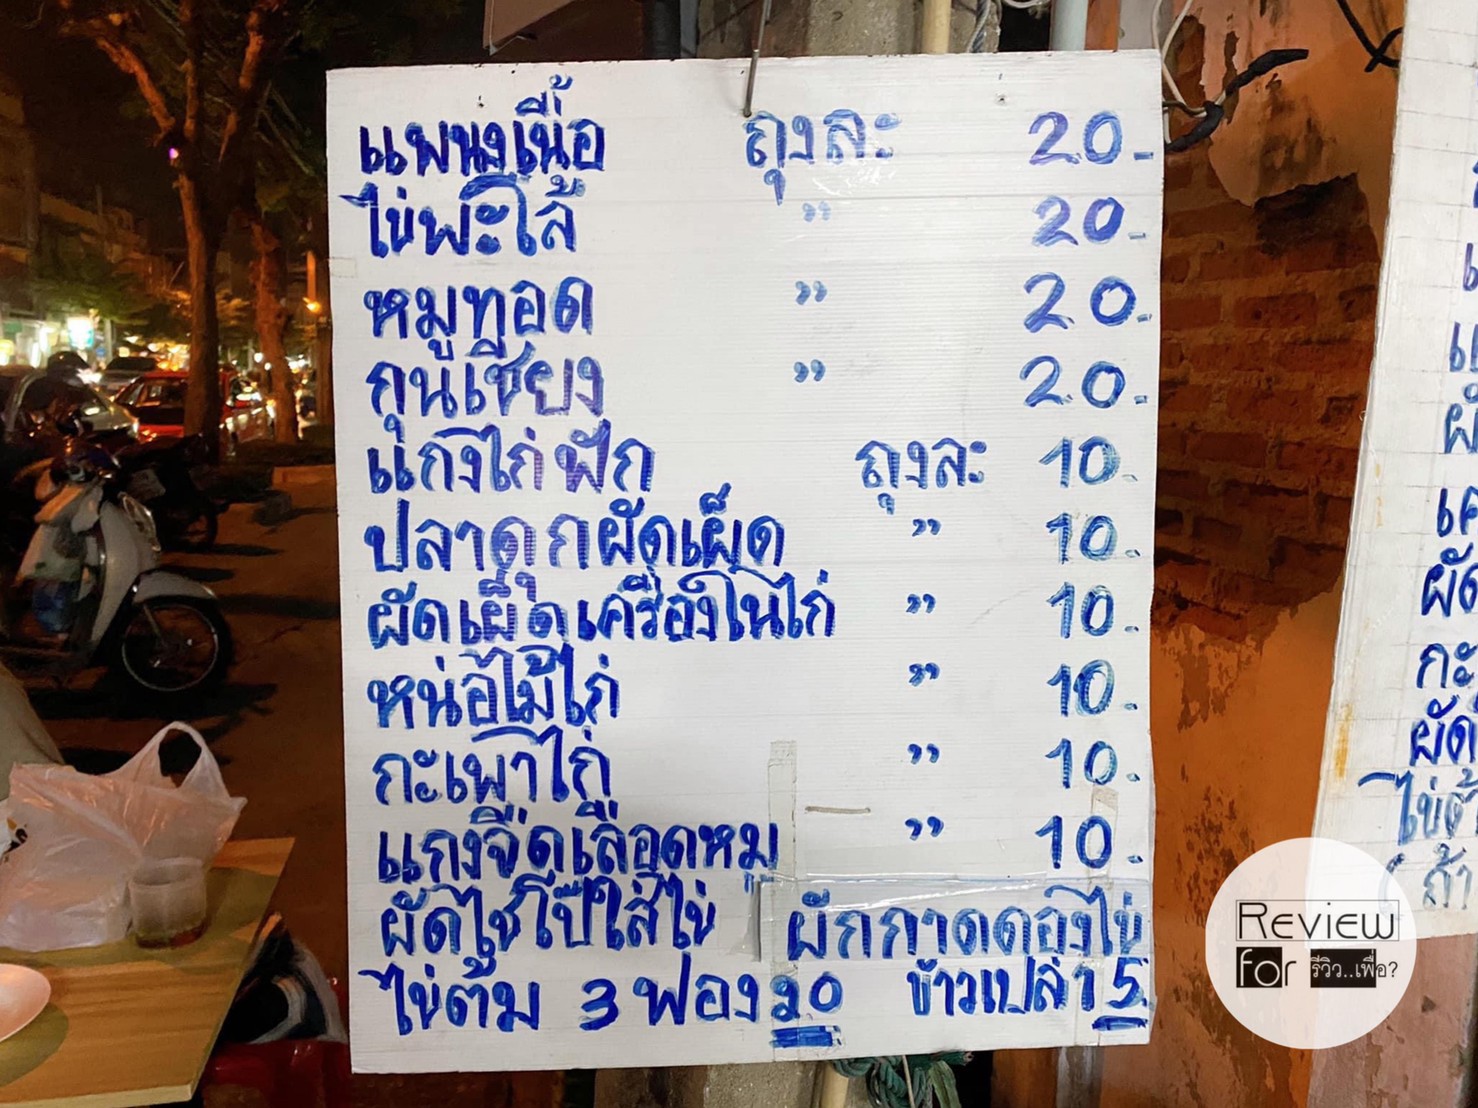 แพนงเนื้อ ถุงละ 20.-
ไข่พะโล้ " 20.-
หมูทอด " 20.-
กุนเชียง " 20.-
แกงไก่ฟัก ถุงละ 10.-
ปลาดุกผัดเผ็ด " 10.-
ผัดเผ็ดเครื่องในไก่ " 10.-
หน่อไม้ไก่ " 10.-
กะเพาไก่ " 10.-
แกงจืดเลือดหมู " 10.-
ผัดไชโป๊ใส่ไข่ ผักกาดดองไข่
ไข่ต้ม 3 ฟอง 20 ข้าวเปล่า 5
ผัด
กะ
ผัด
ไข่ต้
Review
for รีวิว..เพื่อ?